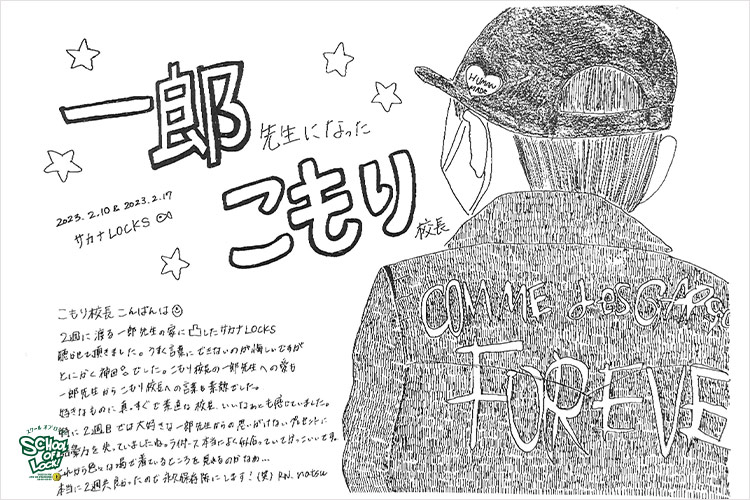 一郎先生になった
こもり校長
2023.2.10 & 2023.2.17
サカナLOCKS
HUMAN
MADE
COMME des GARSO
FOREVE
こもり校長 こんばんは
2週に渡る一郎先生の家に凸したサカナLOCKS
聴かせて頂きました。うまく言葉にできないのが悔しいですが
とにかく神回でした。こもり校長の一郎先生への愛も
一郎先生からこもり校長への言葉も素敵でした。
好きなものに真っすぐで素直な校長、いいなぁとも感じていました。
特に2週目では大好きな一郎先生からの思いがけないプレゼントに
語彙力を失っていましたね。ライダース本当によく似合っていてかっこいいです。
これから色んな場で着ているところを見れるのかなぁ…
本当に2週共良かったので永久保存版にします！(笑) RN. natsu
スクール オブ ロック
SCHOOL
OF
LOCK!